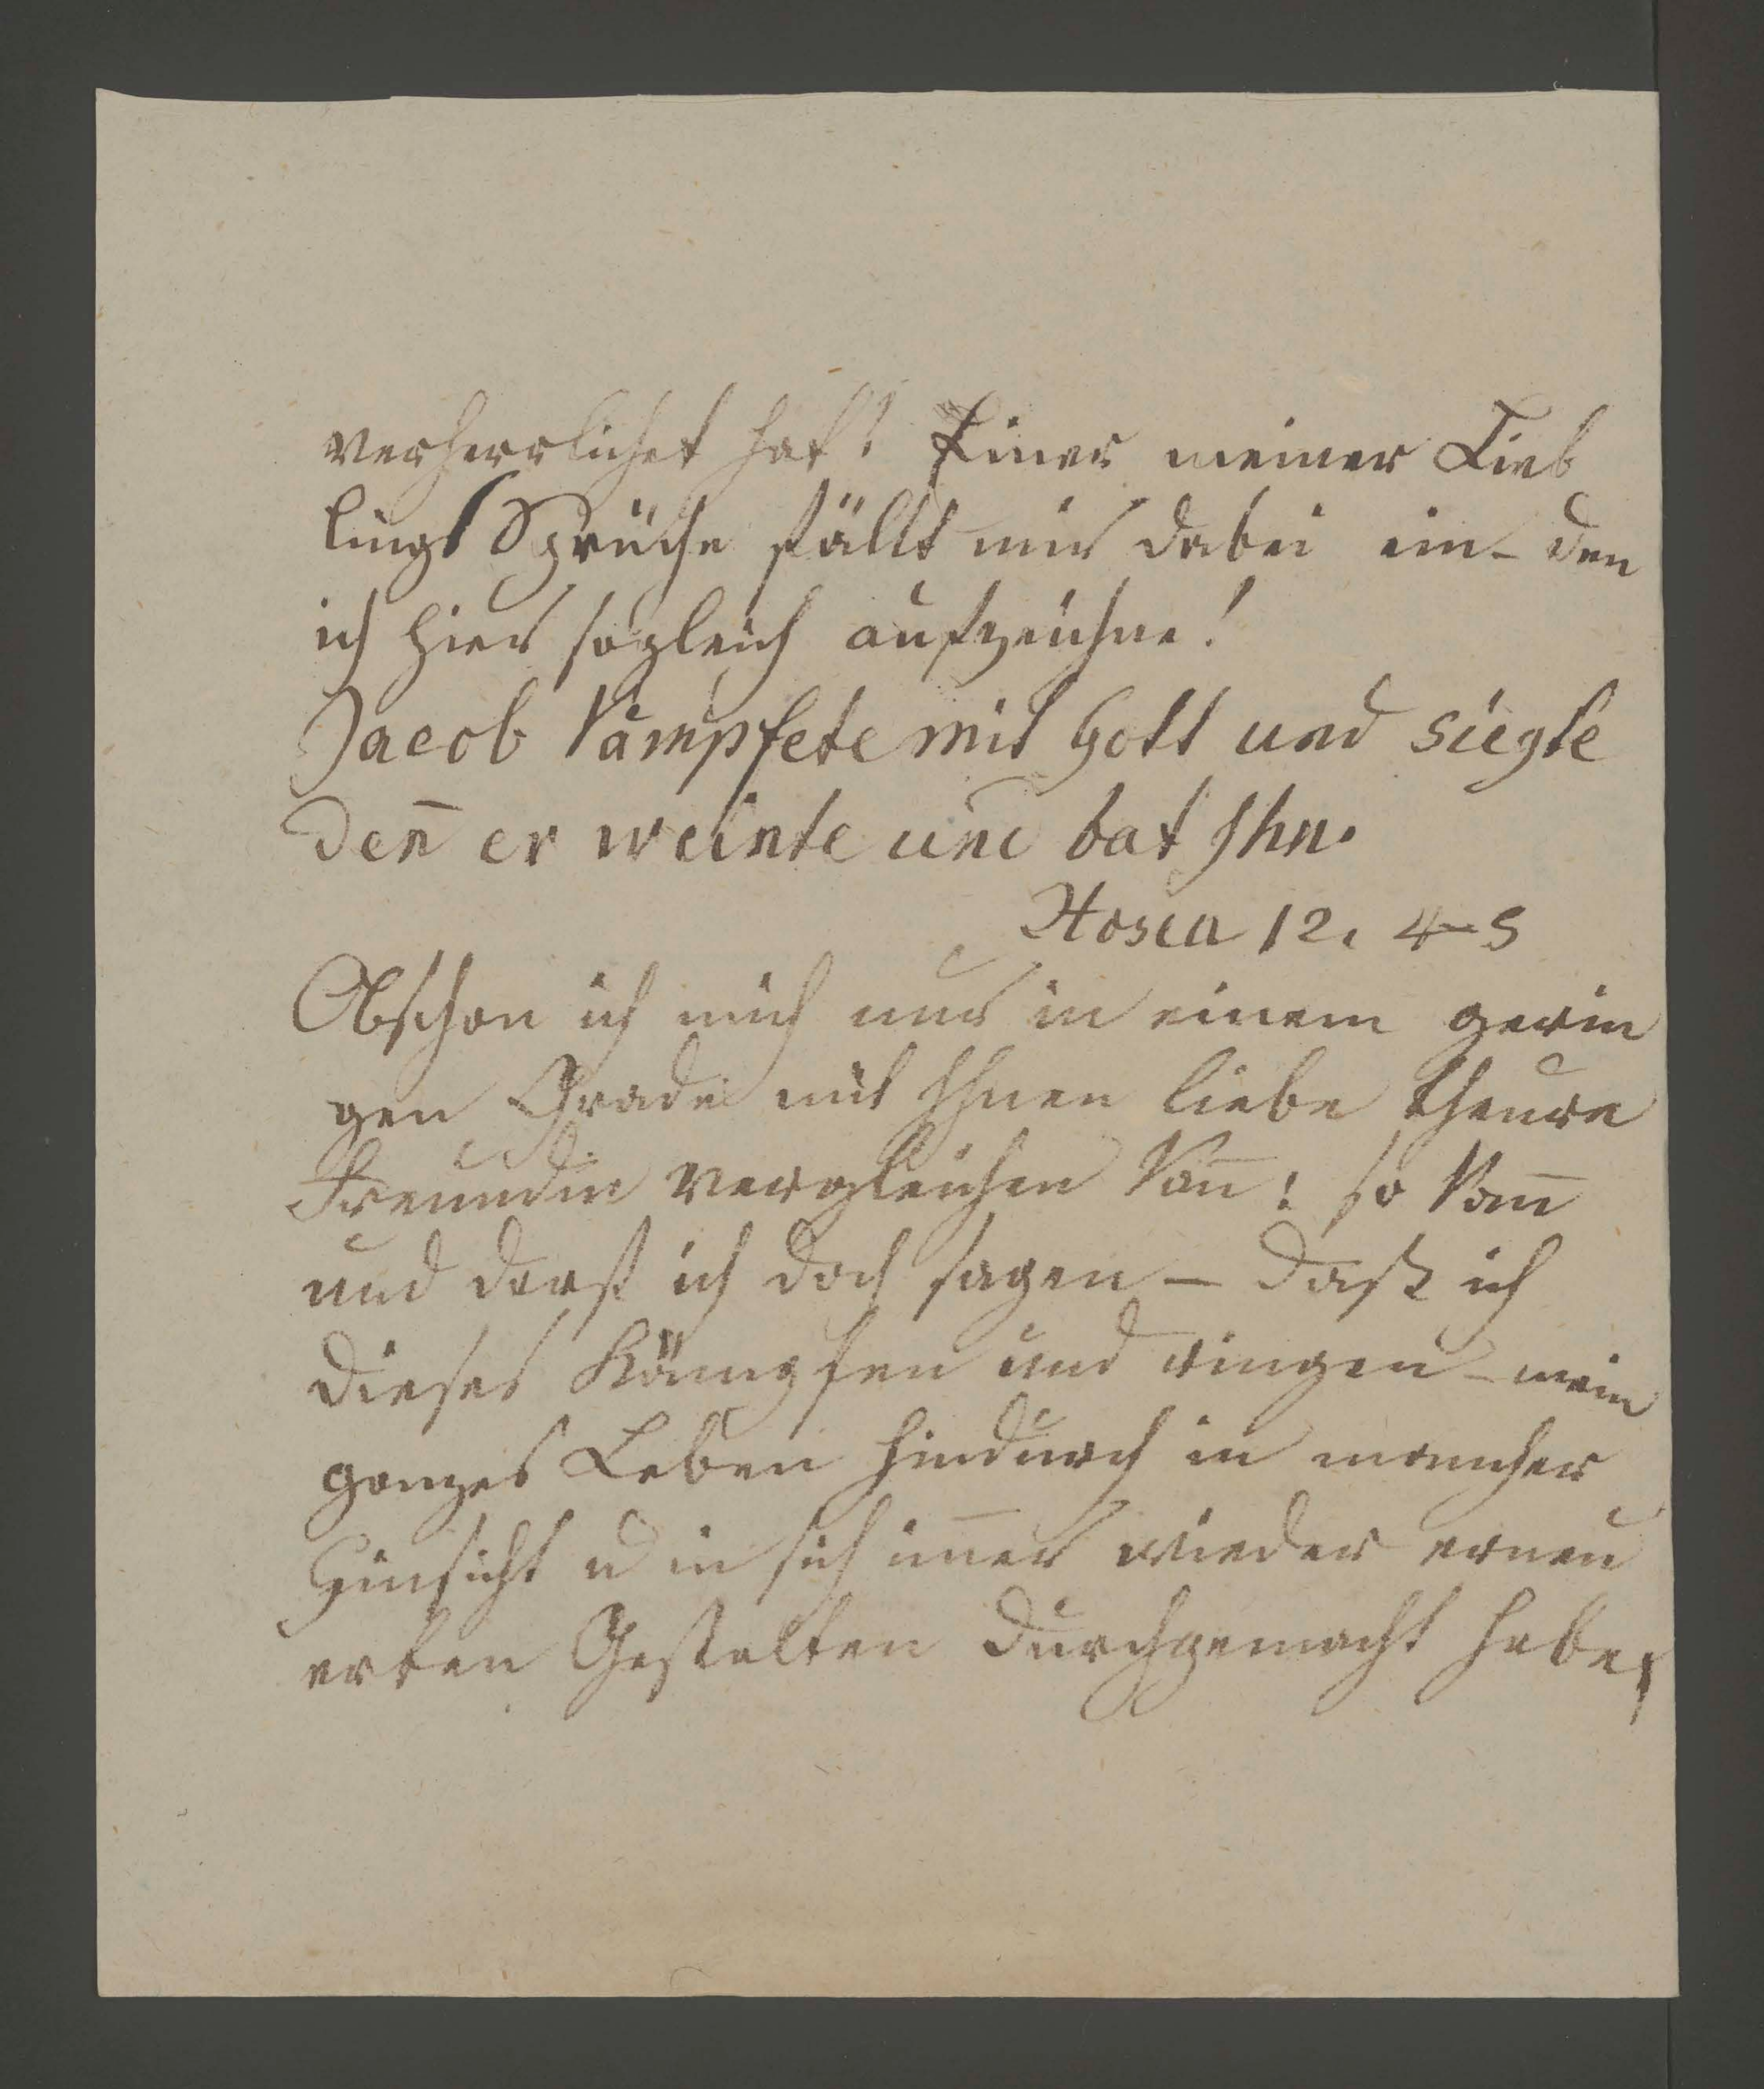 verherrlichet hat! Einer meiner Lieb
lings Sprüche fällt mir dabei ein - den
ich hier sogleich aufzeichne!
Jacob kämpfete mit Gott und siegte
den̄ er weinte und bat Ihn.
Hosea 12. 4-5
Obschon ich mich nur in einem gerin
gen Grade mit Ihnen liebe theure
Freundin vergleichen kan̄: so kan̄
und darf ich doch sagen - daß ich
dieses Kämpfen und ringen - mein
ganzes Leben hindurch in mancher
Hinsicht u in sich im̄er wieder erneu
erten Gestalten durchgemacht habe,